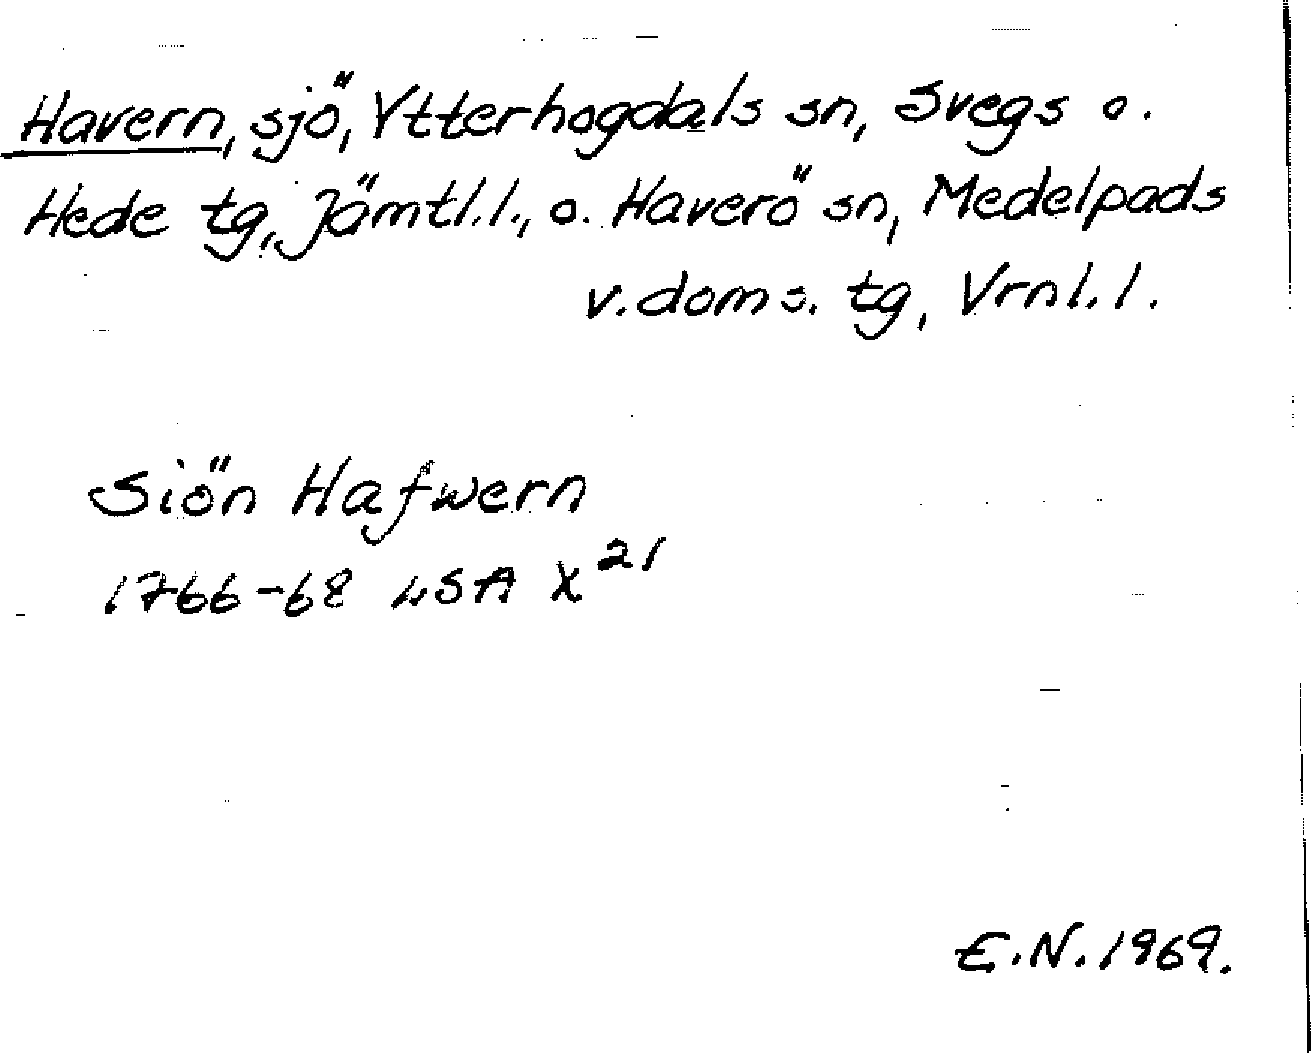 Havern, sjö, Ytterhogdals sn, Svegs o.
Hede tg, Jämtl.l., o. Haverö sn, Medelpads
v.doms. tg, Vrnl.l.
Siön Hafwern
1766-68 LSA X 21
E.N. 1969.